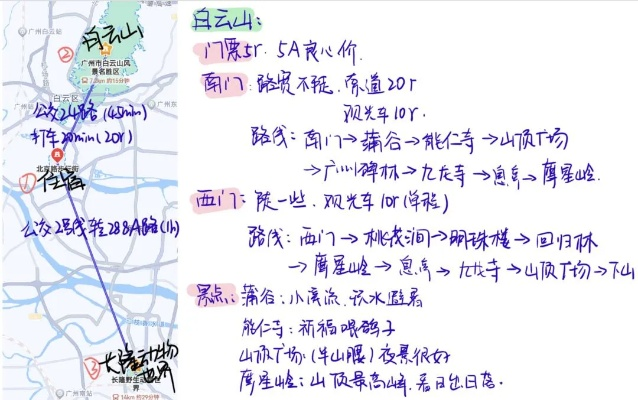 广州白云站
② 白云山
广州市白云山风
景名胜区
白云区
公交24路(45min)
打车20min(20r)
北京路步行街
① 住宿
公交2号线转288A路(1h)
③ 大隆动物
世界
长隆野生动物世
界
广州南站
14km 约29分钟
白云山:
门票5r. 5A良心价.
南门: 路宽不陡. 索道20r
观光车10r.
路线: 南门→蒲谷→能仁寺→山顶广场
→广州碑林→九龙寺→息亭→摩星岭.
西门: 陡一些. 观光车10r(单程)
路线: 西门→桃花涧→明珠楼→回归林
→摩星岭→息亭→九龙寺→山顶广场→下山
景点: 蒲谷: 小溪流. 玩水避暑
能仁寺: 祈福喂鸽子
山顶广场: (半山腰) 夜景很好
摩星岭: 山顶最高峰. 看日出日落.